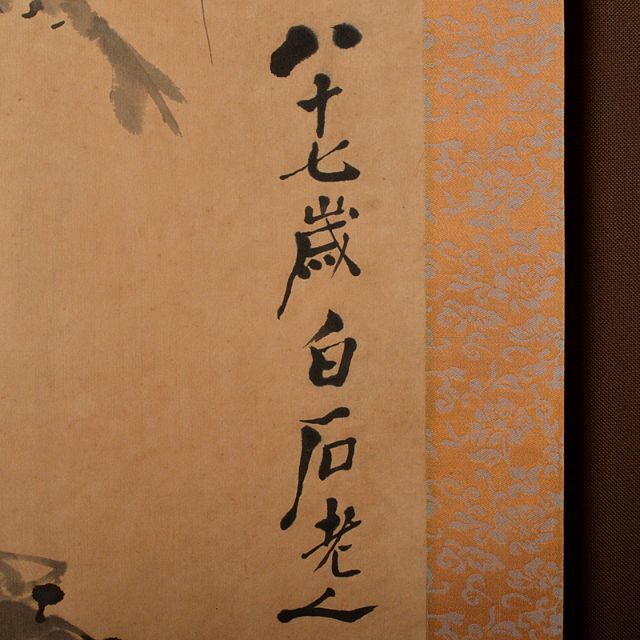 八十七歲白石老人